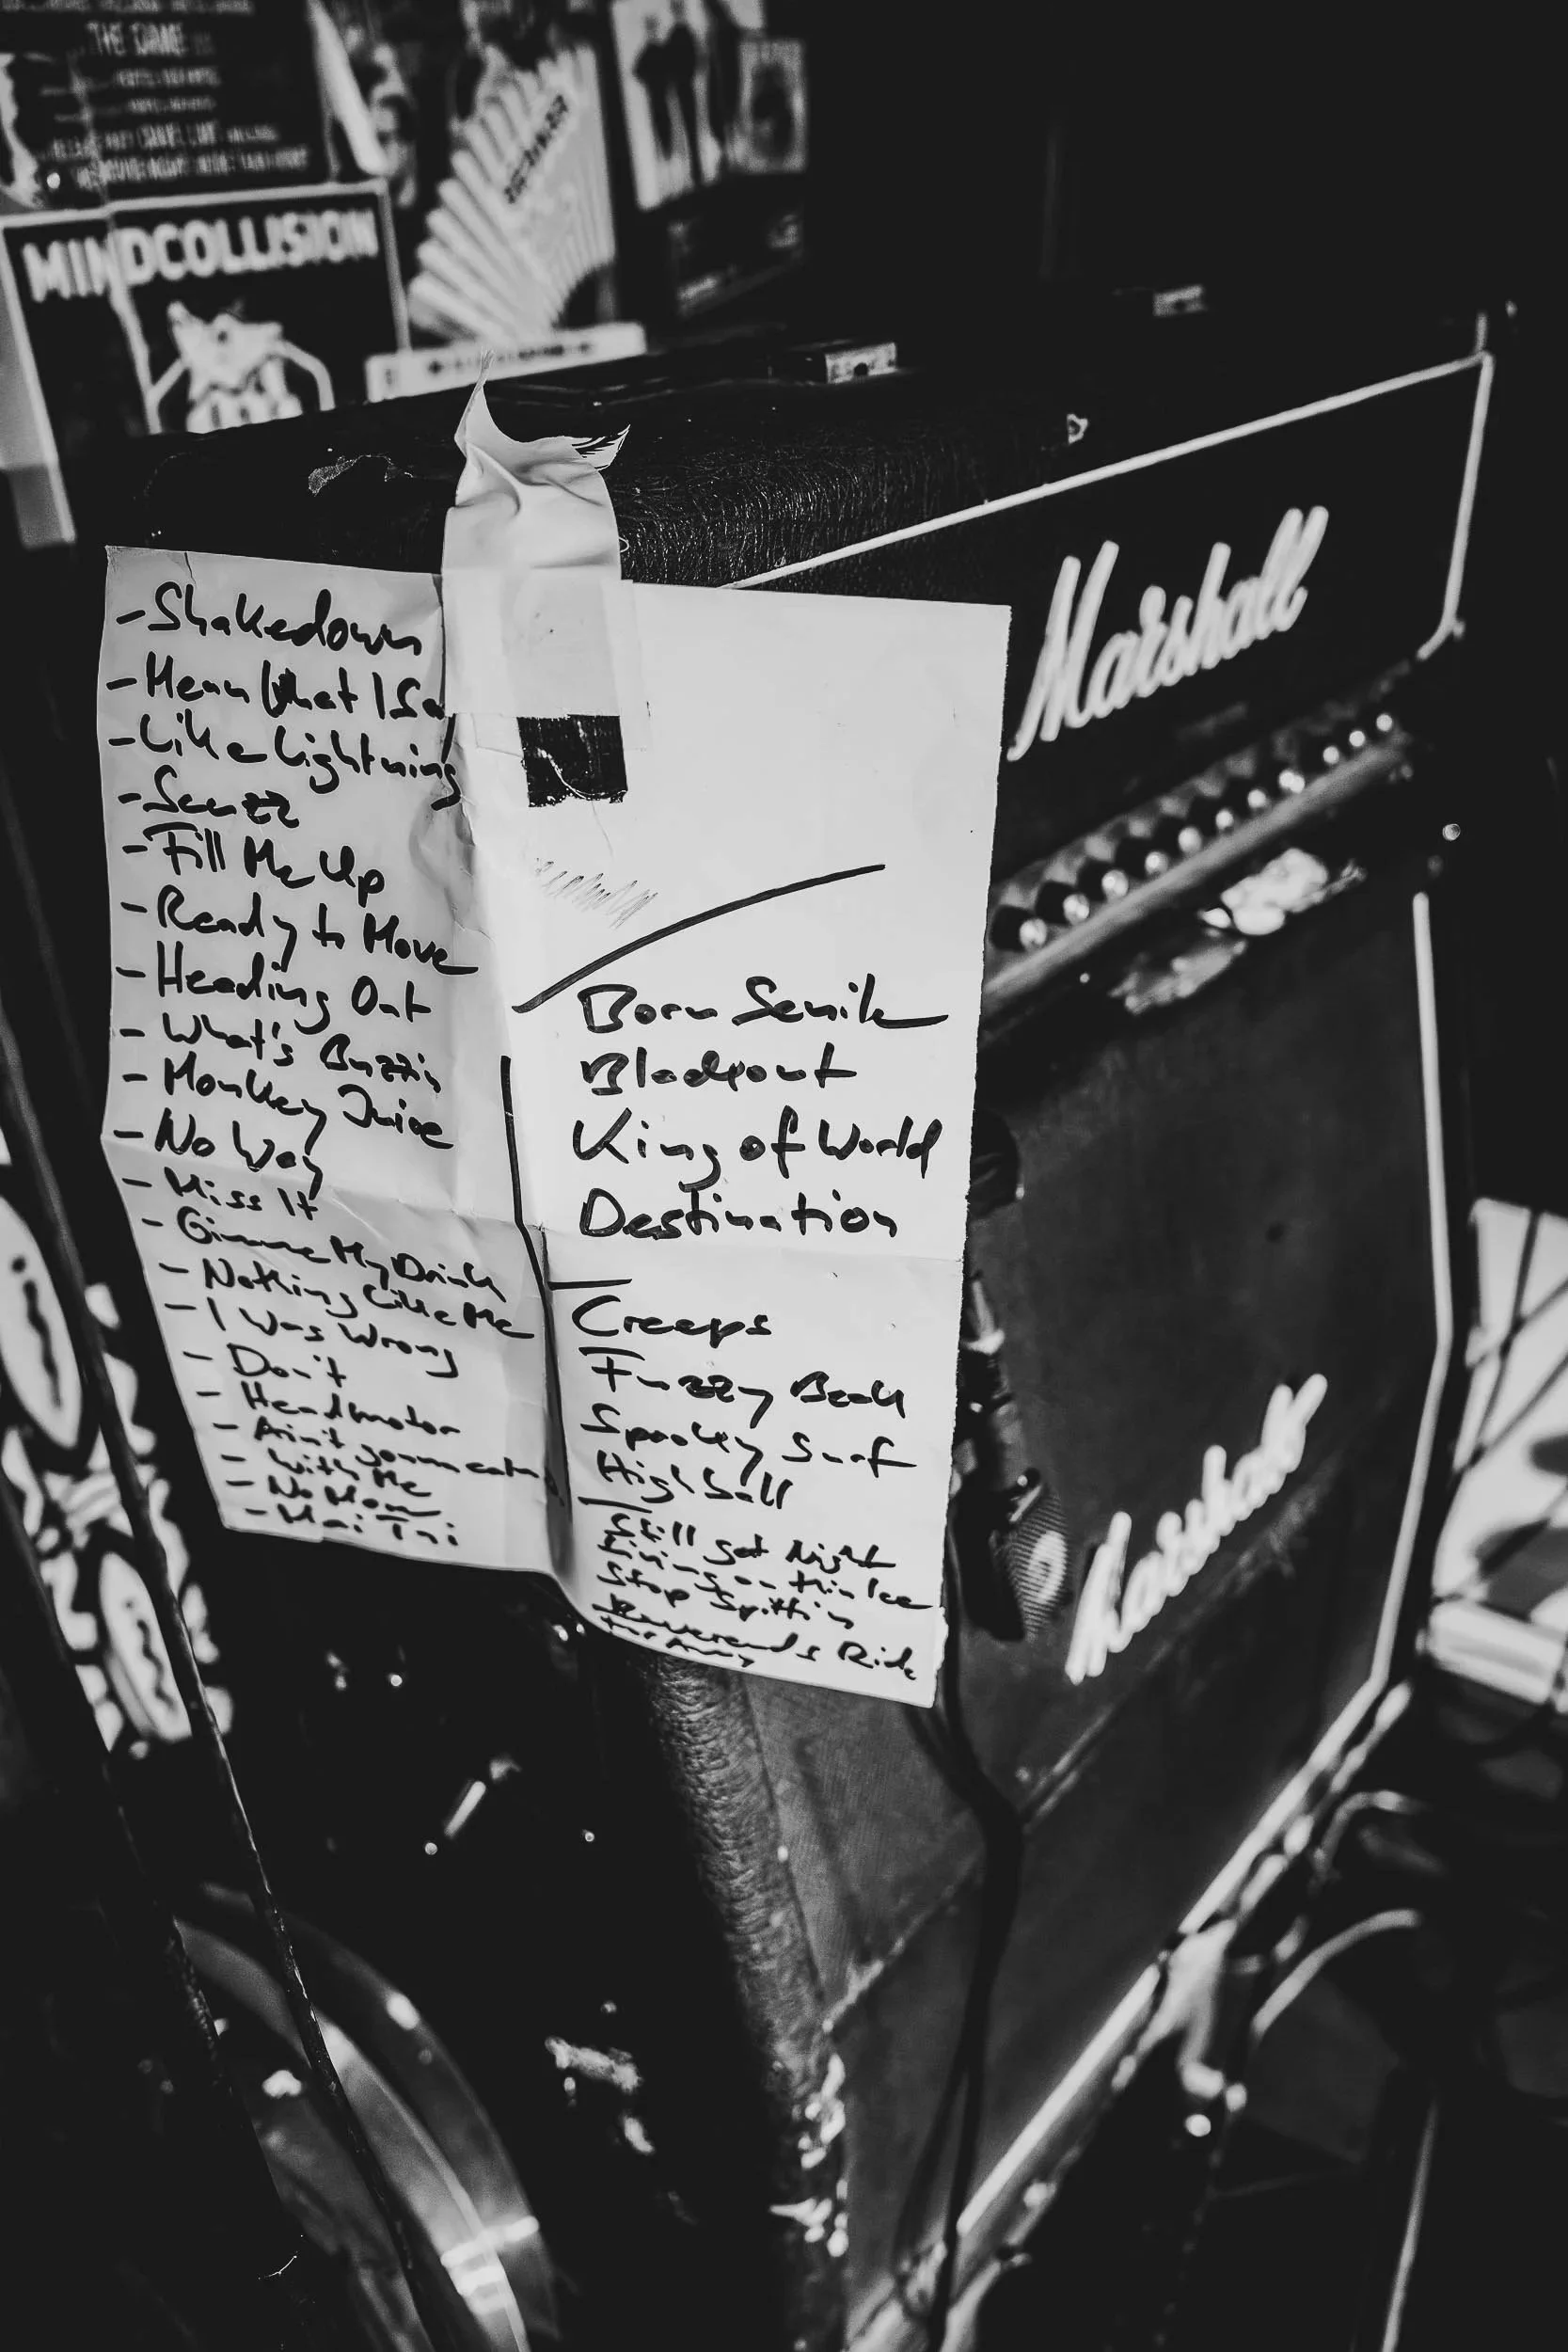 THE DAME
MINDCOLLISION
Marshall
- Shakedown
- Mean What I Sa
- Like Lightning
- Scuzz
- Fill Me Up
- Ready to Move
- Heading Out
- What's Buzzin
- Monkey Juice
- No Way
- Miss It
- Gimme My Drink
- Nothing Like Me
- I Was Wrong
- Don't
- Headmotor
- Ain't gonna
- With Me
- No More
- Mai Tai
Born Senile
Blackout
King of World
Destination
Creeps
Fuzzy Beak
Spooky Surf
Highball
Still got Night
Living on thin Ice
Stop Spittin
Reverends Ride
Marshall